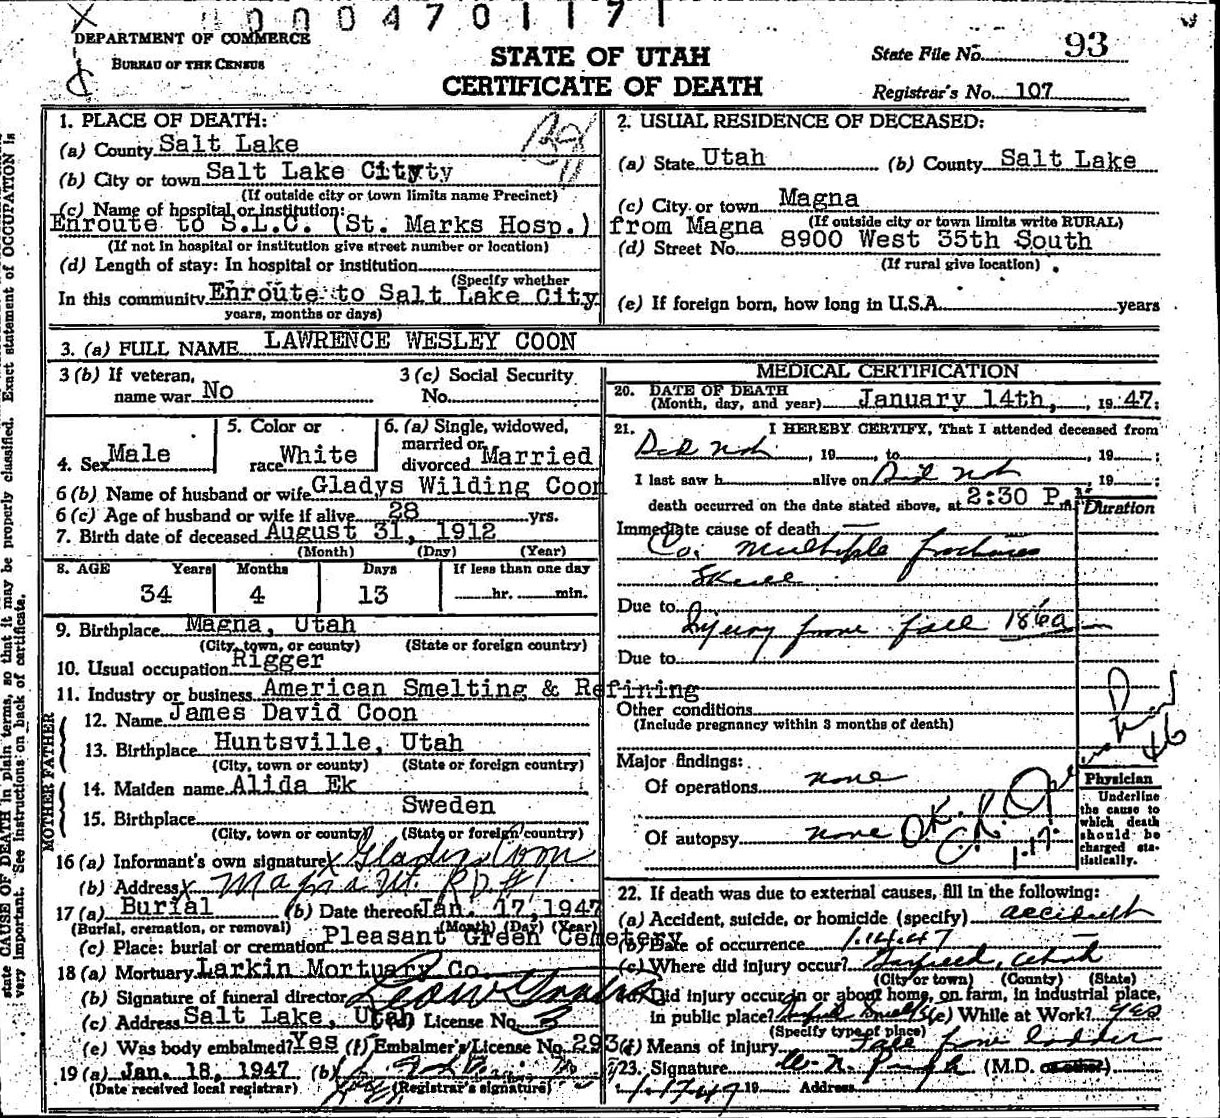 00004701171
DEPARTMENT OF COMMERCE
BUREAU OF THE CENSUS
STATE OF UTAH
CERTIFICATE OF DEATH
State File No. 93
Registrar's No. 107
1. PLACE OF DEATH:
(a) County Salt Lake
(b) City or town Salt Lake City
(If outside city or town limits name Precinct)
(c) Name of hospital or institution:
Enroute to S.L.C. (St. Marks Hosp.) from Magna
(If not in hospital or institution give street number or location)
(d) Length of stay: In hospital or institution
(Specify whether
In this community Enroute to Salt Lake City
years, months or days)
2. USUAL RESIDENCE OF DECEASED:
(a) State Utah (b) County Salt Lake
(c) City or town Magna
(If outside city or town limits write RURAL)
(d) Street No. 8900 West 35th South
(If rural give location)
(e) If foreign born, how long in U.S.A. years
3. (a) FULL NAME LAWRENCE WESLEY COON
3 (b) If veteran, name war No
3 (c) Social Security No.
4. Sex Male
5. Color or race White
6. (a) Single, widowed, married or divorced Married
6 (b) Name of husband or wife Gladys Wilding Coon
6 (c) Age of husband or wife if alive 28 yrs.
7. Birth date of deceased August 31, 1912
(Month) (Day) (Year)
8. AGE Years Months Days If less than one day
34 4 13 hr. min.
9. Birthplace Magna, Utah
(City, town, or county) (State or foreign country)
10. Usual occupation Rigger
11. Industry or business American Smelting & Refining
FATHER
12. Name James David Coon
13. Birthplace Huntsville, Utah
(City, town or county) (State or foreign country)
MOTHER
14. Maiden name Alida Ek
15. Birthplace Sweden
(City, town or county) (State or foreign country)
16 (a) Informant's own signature x Gladys Coon
(b) Address x Magna Ut. RD #1
17 (a) Burial (b) Date thereof Jan. 17, 1947
(Burial, cremation, or removal) (Month) (Day) (Year)
(c) Place: burial or cremation Pleasant Green Cemetery
18 (a) Mortuary Larkin Mortuary Co.
(b) Signature of funeral director
(c) Address Salt Lake, Utah (d) License No. 3
(e) Was body embalmed? Yes (f) Embalmer's License No. 293
19 (a) Jan. 18, 1947 (b)
(Date received local registrar) (Registrar's signature)
MEDICAL CERTIFICATION
20. DATE OF DEATH
(Month, day, and year) January 14th, 1947
21. I HEREBY CERTIFY, That I attended deceased from
Did not , 19 , to , 19 ;
I last saw h alive on Did not , 19 ;
death occurred on the date stated above, at 2:30 P.m.
Duration
Immediate cause of death
Co. multiple fractures
Skull
Due to
Injury from fall 186a
Due to
Other conditions
(Include pregnancy within 3 months of death)
Major findings:
Of operations none
Of autopsy none
O.K.
1.17.
Physician
Underline the cause to which death should be charged statistically.
22. If death was due to external causes, fill in the following:
(a) Accident, suicide, or homicide (specify) accident
(b) Date of occurrence 1.14.47
(c) Where did injury occur? Garfield, Utah
(City or town) (County) (State)
(d) Did injury occur in or about home, on farm, in industrial place,
in public place? (e) While at Work? yes
(Specify type of place)
(f) Means of injury Fall from ladder
23. Signature (M.D. or other)
1.17.47 19 Address
state CAUSE OF DEATH in plain terms, so that it may be properly classified. Exact statement of OCCUPATION is
very important. See instructions on back of certificate.